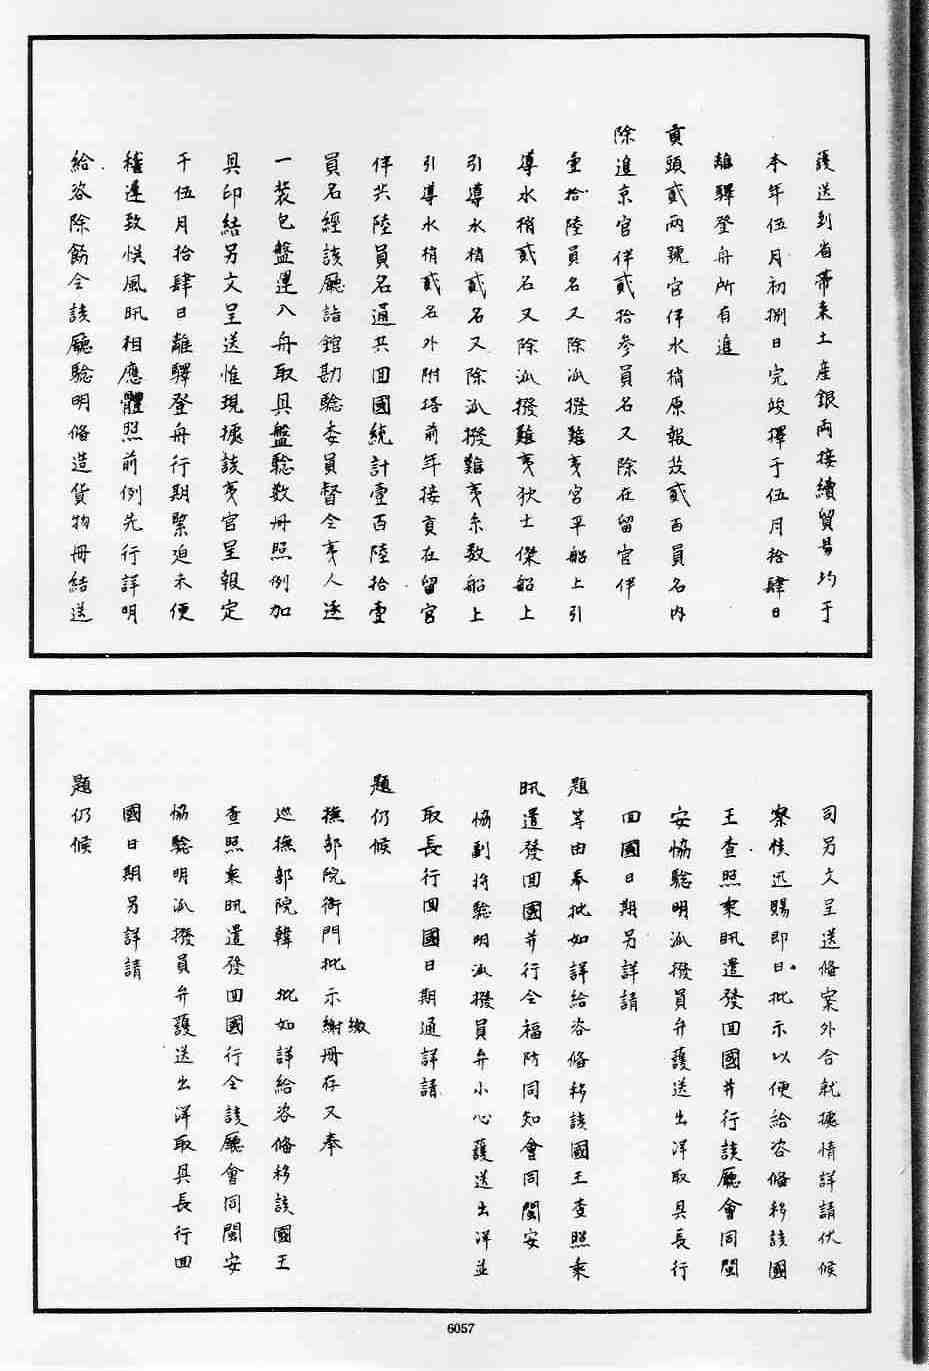 護送到省帶來土產銀兩接續貿易均于
本年伍月初捌日完竣擇于伍月拾肆日
離驛登舟所有進
貢頭貳兩號官伴水稍原報共貳百員名內
除進京官伴貳拾參員名又除在留官伴
壹拾陸員名又除派撥難夷宮平船上引
導水稍貳名又除派撥難夷狄士傑船上
引導水稍貳名又除派撥難夷糸数船上
引導水稍貳名外附搭前年接貢在留官
伴共陸員名通共回國統計壹百陸拾壹
員名經該廳詣館勘驗委員督令夷人逐
一裝包盤運入舟取具盤驗数冊照例加
具印結另文呈送惟現據該夷官呈報定
于伍月拾肆日離驛登舟行期緊迫未便
稽遲致悞風汛相應體照前例先行詳明
給咨除飭令該廳驗明偹造貨物冊結送
司另文呈送偹案外合就據情詳請伏候
察核迅賜即日批示以便給咨偹移該國
王查照乘汛遣發回國并行該廳會同閩
安協驗明派撥員弁護送出洋取具長行
回國日期另詳請
題等由奉批如詳給咨偹移該國王查照乘
汛遣發回國并行令福防同知會同閩安
協副將驗明派撥員弁小心護送出洋並
取長行回國日期通詳請
題仍候
撫部院衙門批示繳冊存又奉
巡撫部院韓 批如詳給咨偹移該國王
查照乘汛遣發回國行令該廳會同閩安
協驗明派撥員弁護送出洋取具長行回
國日期另詳請
題仍候
6057